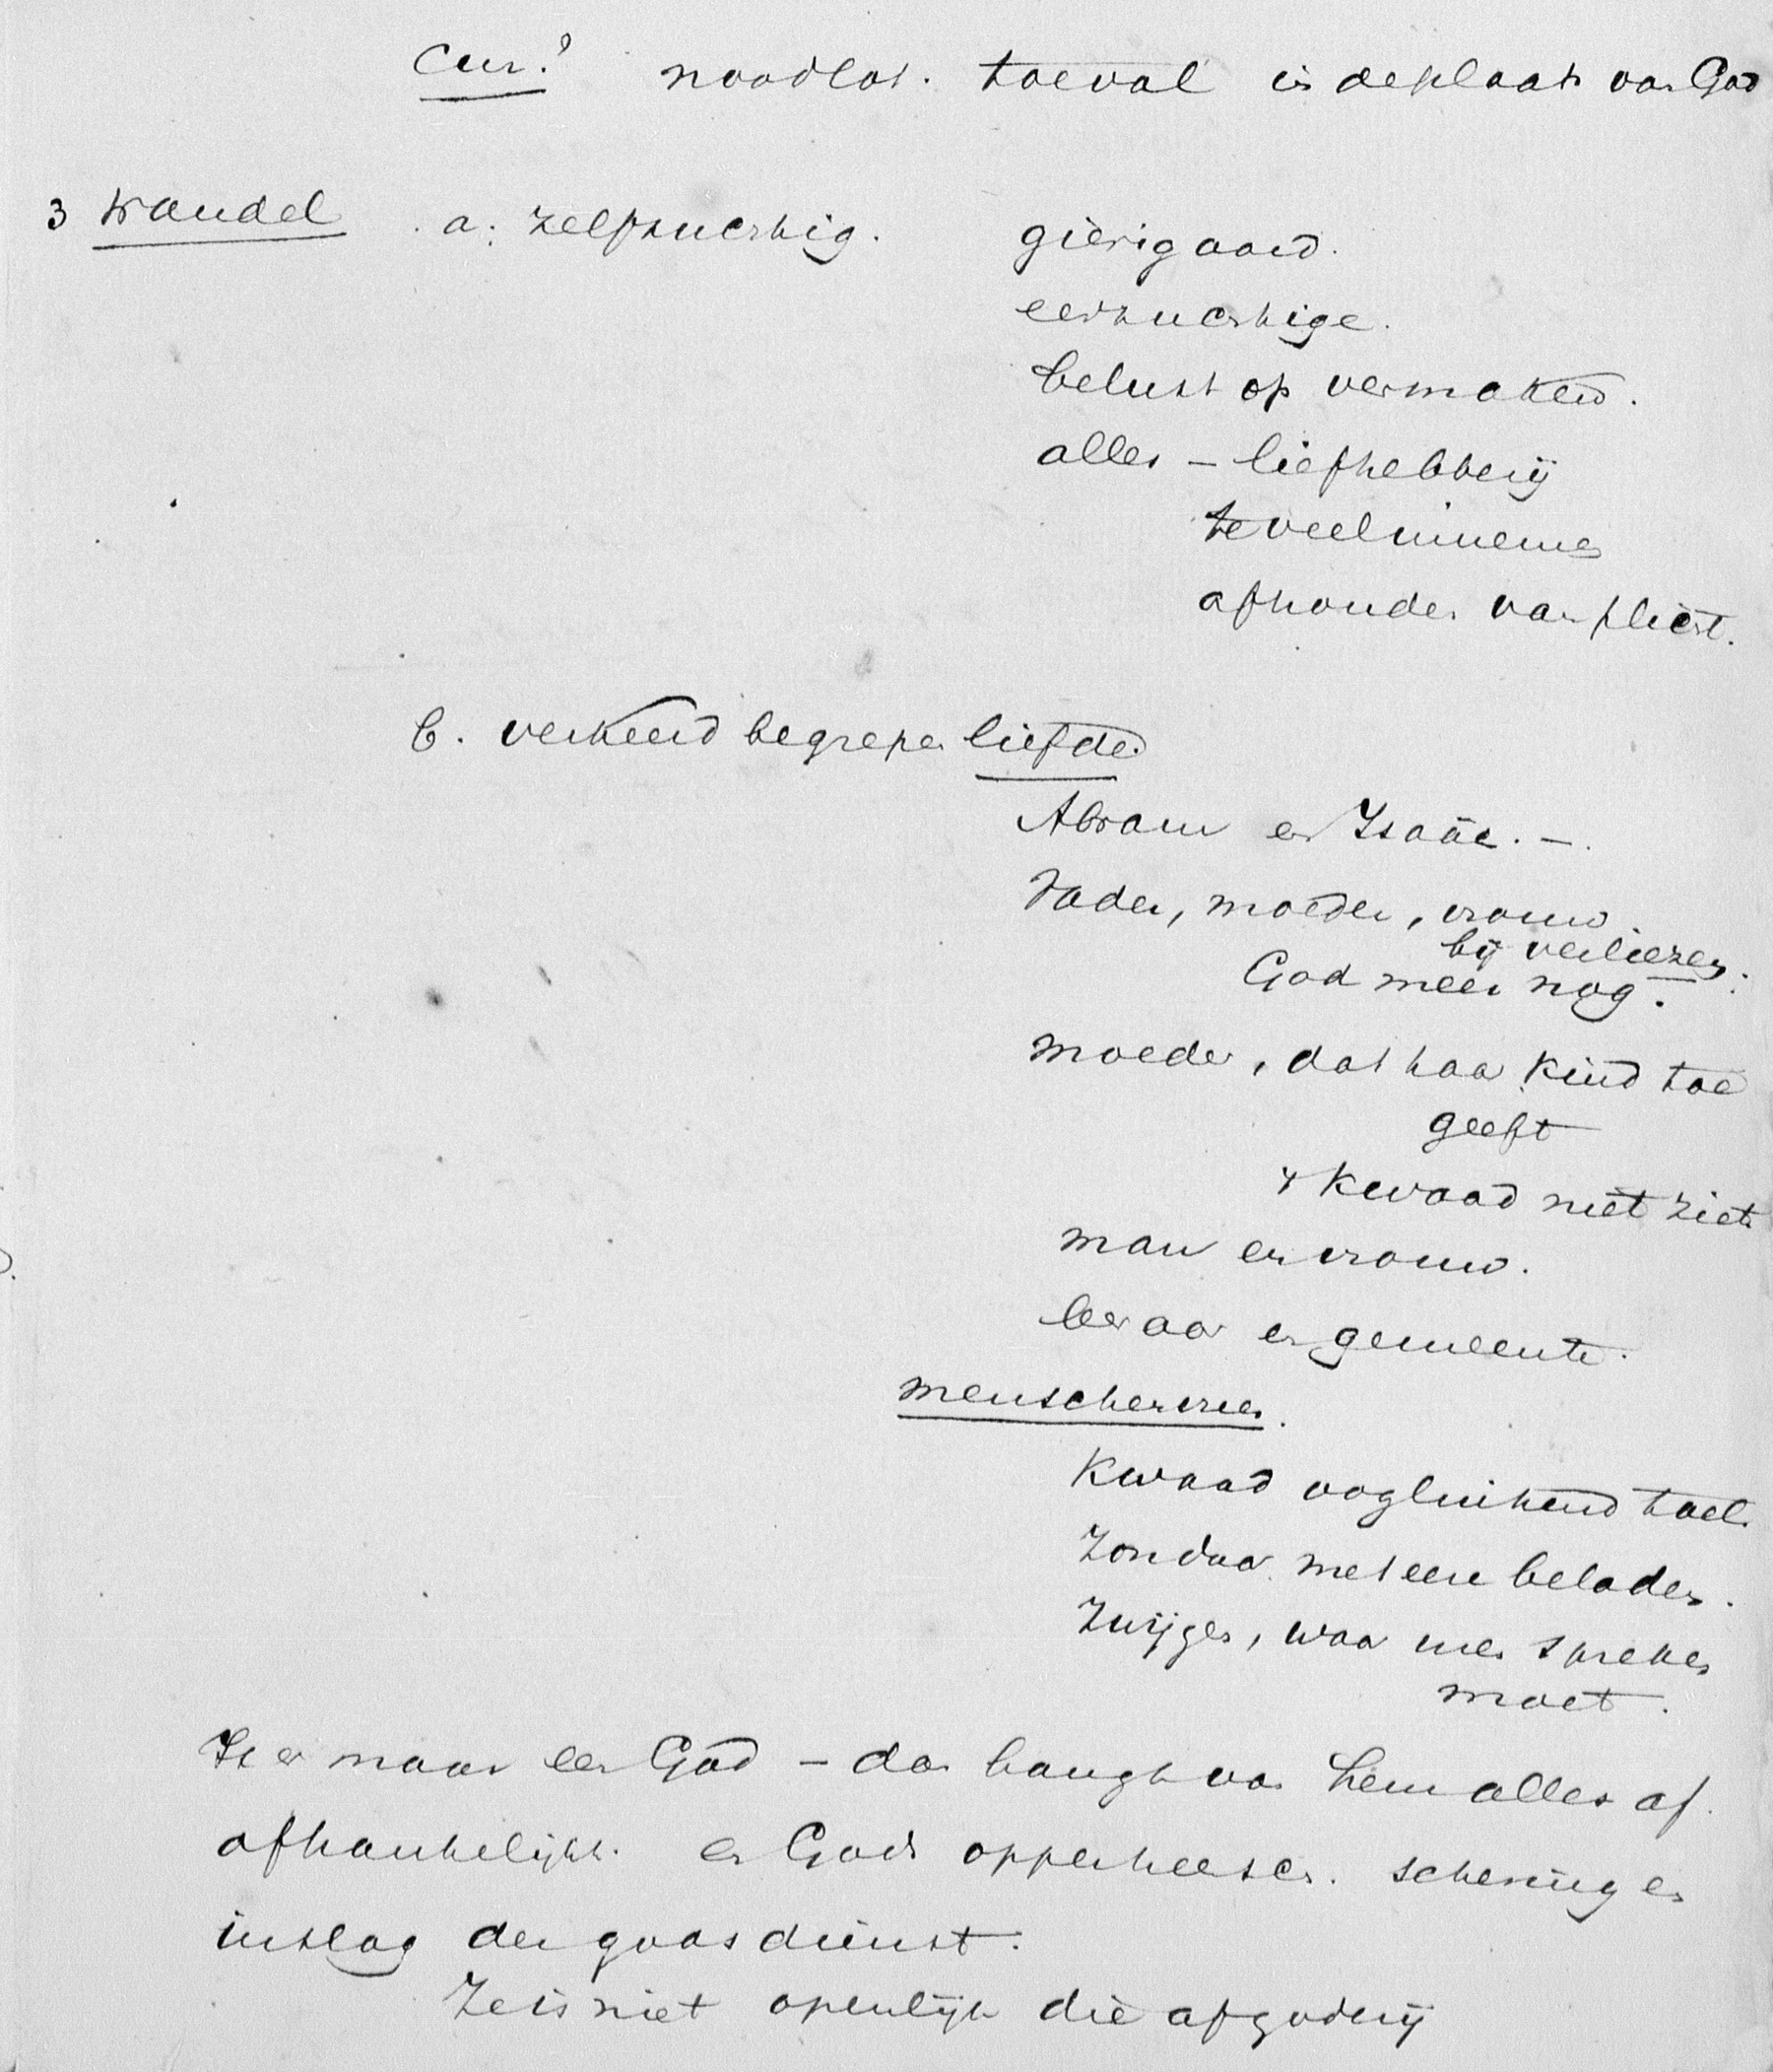 Cur? noodlot. toeval in de plaats van God
3 Wandel . a: zelfzuchtig. gierigaard.
eerzuchtige.
belust op vermaken.
alles – liefhebberij
te veel innemen
afhouden van plicht.
b. verkeerd begrepen liefde.
Abram en Izaäc. –.
Vader, moeder, vrouw
bij verliezen.
God meer nog.
moeder, dat haar kind toe
geeft
't kwaad niet ziet
man en vrouw.
leeraar en gemeente.
menschenvrees.
Kwaad oogluikend toel.
Zondaar met eere beladen.
Zwijgen, waar men spreken
moet.
Is er maar een God – dan hangt van Hem alles af.
afhankelijkh. en Gods opperheersch. schering en
inslag der godsdienst.
Ze is niet openlijk die afgoderij